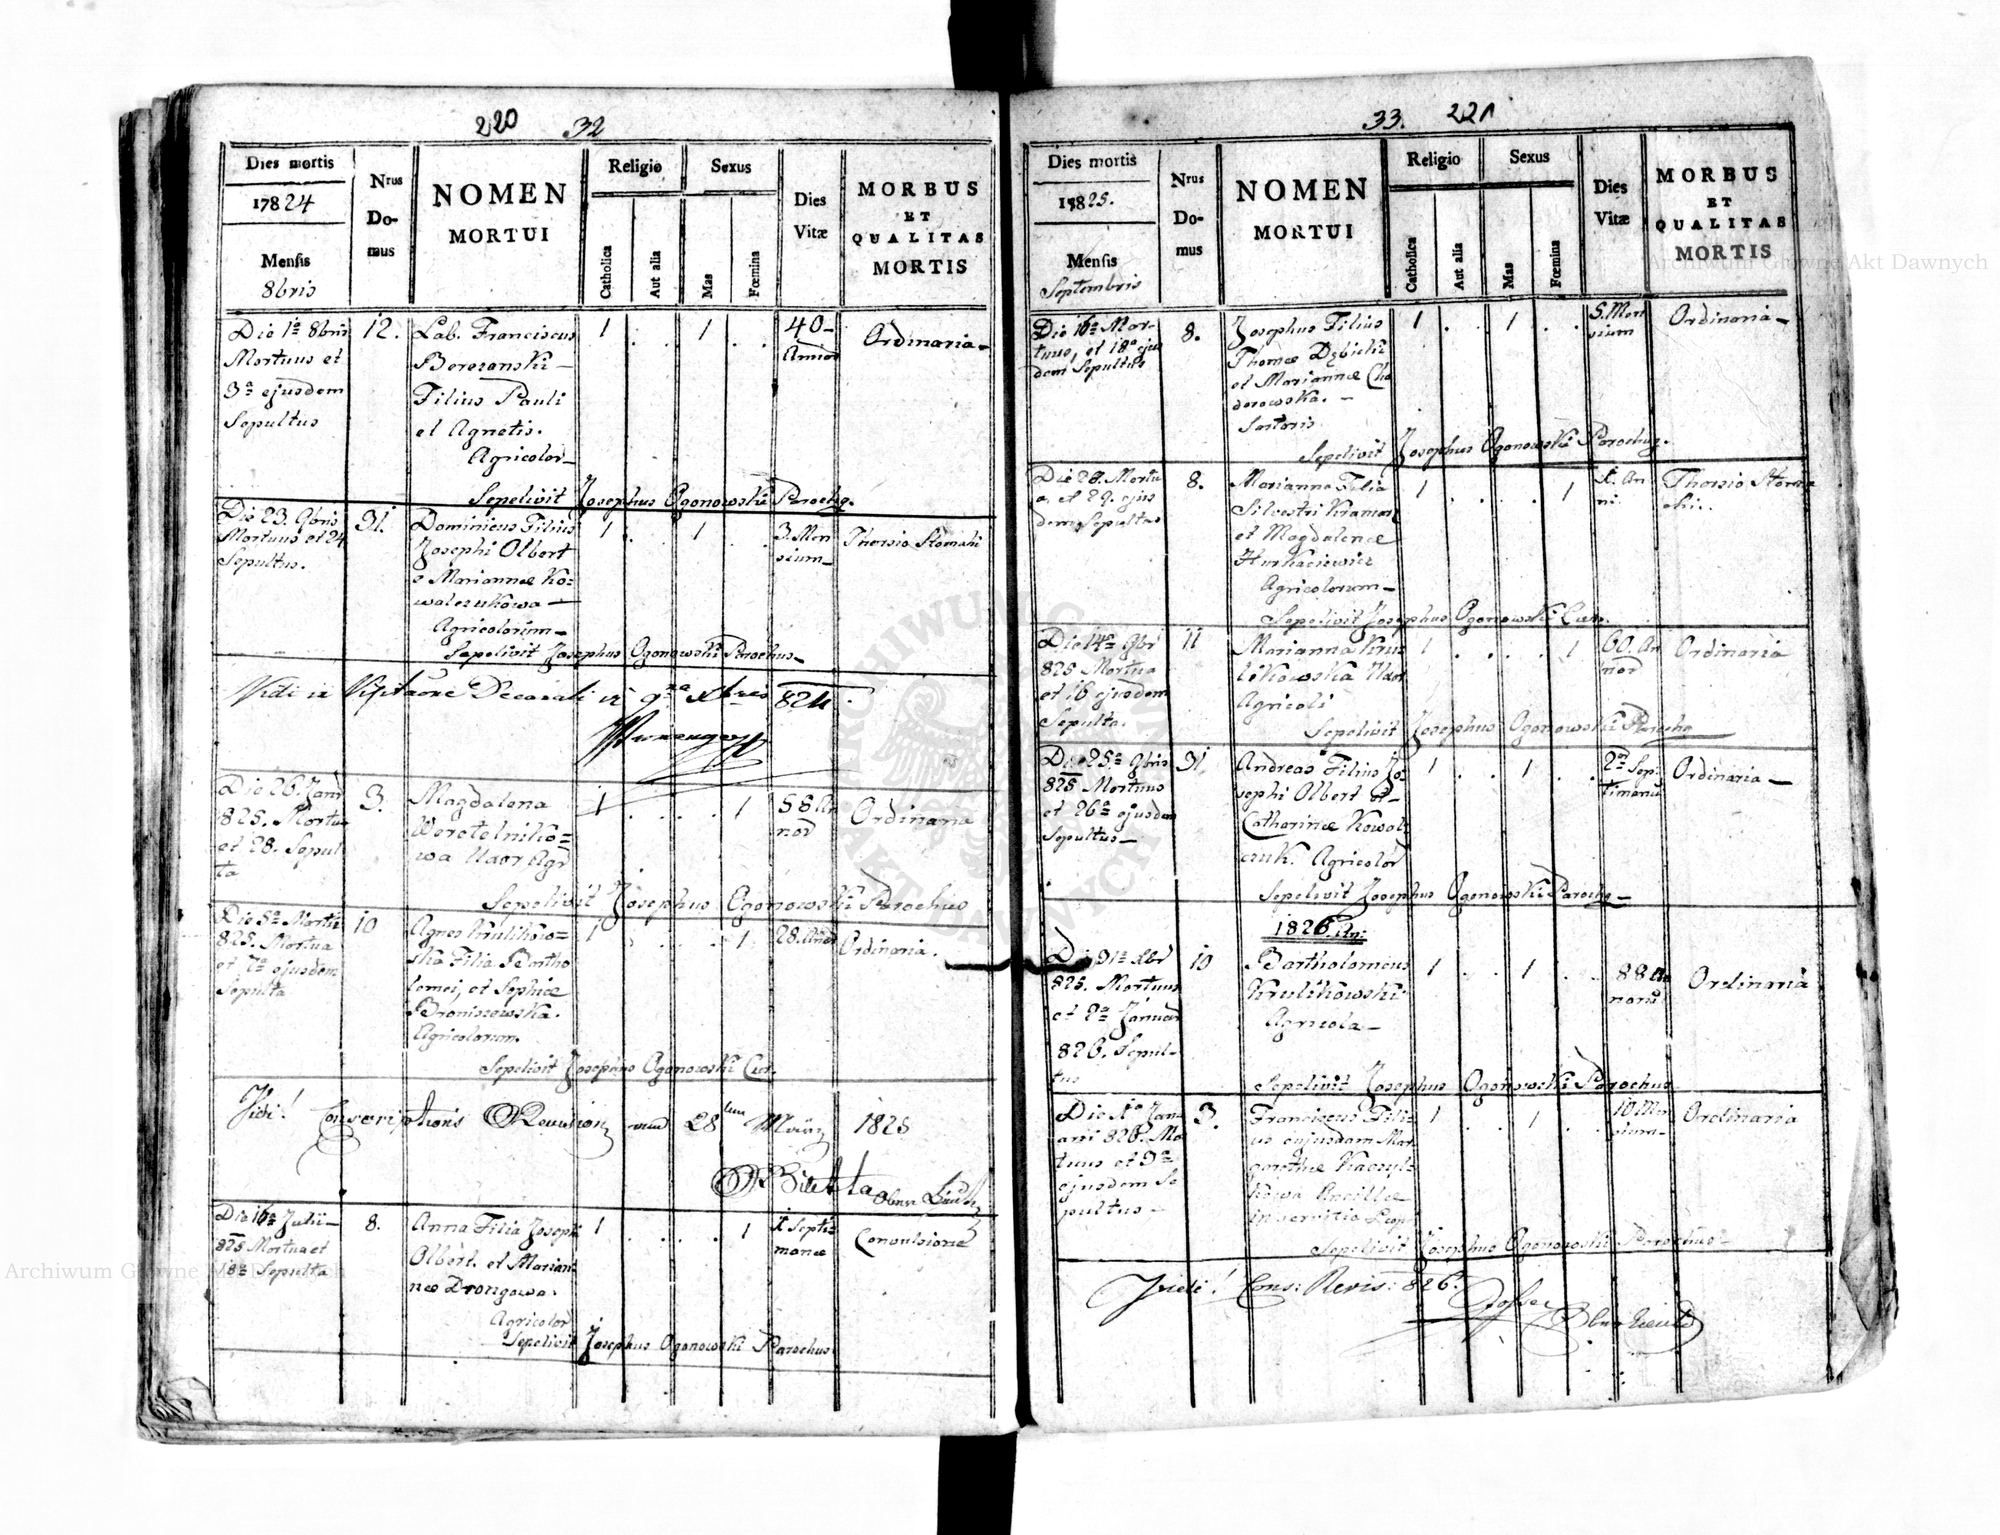 220 32
Dies mortis
1824
Mensis
8bris
Nrus
Do-
mus
NOMEN
MORTUI
Religio
Catholica
Aut alia
Sexus
Mas
Fœmina
Dies
Vitæ
MORBUS
ET
QUALITAS
MORTIS
Die 1a 8bris
Mortuus et
3a ejusdem
Sepultus
12.
Lab. Franciscus
Berezanski
Filius Pauli
et Agnetis.
Agricolar
1 . 1 .
40
Annor
Ordinaria
Sepelivit Josephus Ogonowski Parochq.
Die 23. 9bris
Mortuus et 24
Sepultus.
31.
Dominicus Filius
Josephi Olbert
e Mariannæ Ko=
walczukowa
Agricolorum
1 . 1 .
3. Men
sium
Thorsio Stomahi
Sepelivit Josephus Ogonowski Parochus
Vidi in Decanali 9na Xbris 824.
Die 26. Janr
825. Mortua
et 28. Sepul
ta
3.
Magdalena
Weretelniko=
wa Uxor Agr
1 . . 1
58 An
nor
Ordinaria
Sepelivit Josephus Ogonowski Parochus
Die 5a Martii
825. Mortua
et 7a ejusdem
Sepulta
10
Agnes Krulikow=
ska Filia Bartho
lomei, et Sophiæ
Broniszewska.
Agricolorum.
1 . . 1
28. Anor
Ordinaria.
Sepelivit Josephus Ogonowski Cur.
Vidi! Conscriptions Revision 28 März 1825
Die 16a Julii
825 Mortua et
18a Sepulta
8.
Anna Filia Joseph
Olbert. et Marian
næ Drongowa.
Agricolor
1 . . 1
Septi
manæ
Convulsione
Sepelivit Josephus Ogonowski Parochus
33. 221
Dies mortis
1825.
Mensis
Septembris
Nrus
Do-
mus
NOMEN
MORTUI
Religio
Catholica
Aut alia
Sexus
Mas
Fœmina
Dies
Vitæ
MORBUS
ET
QUALITAS
MORTIS
Die 16a Mor-
tuus, et 18a ejus
dem Sepultus
8.
Josephus Filius
Thomæ Dębicki
et Mariannæ Cho
dorowska.
Sartoris.
1 . 1 .
5. Men
sium
Ordinaria
Sepelivit Josephus Ogonowski Parochus.
Die 28. Mortu
a, et 29. ejus
dem Sepulta
8.
Marianna Filia
Silvestri Kramar
et Magdalenæ
Hurkaciewicz
Agricolorum
1 . . 1
An
ni.
Thorsio Stoma
chi.
Sepelivit Josephus Ogonowski Cur.
Die 14a 9br
825 Mortua
et 16 ejusdem
Sepulta.
11
Marianna Kru
likowska Uxor
Agricoli
1 . . 1
60. An
nor
Ordinaria
Sepelivit Josephus Ogonowski Parochq
Die 25a 9bris
825 Mortuus
et 26a ejusdem
Sepultus
31.
Andreas Filius Jo:
sephi Olbert et
Catharinæ Kowal
czuk. Agricolor
1 . 1 .
2m Sep:
timanar
Ordinaria
Sepelivit Josephus Ogonowski Parochq
1826. An:
Die 31a Xbr
825. Mortuus
et 2a Januar
826. Sepul-
tus
10
Bartholomeus
Krulikowski
Agricola
1 . 1 .
88 An
norum
Ordinaria
Sepelivit Josephus Ogonowski Parochus
Jan
uarii 826. Mo
tuus et 9a
ejusdem Se
pultus
3.
Franciscus Fili
us cujusdam Mar
garethæ
Ancillæ
in servitio
1 . 1 .
10 Men
sium
Ordinaria
Sepelivit Josephus Ogonowski Parochus
Vidi! Cons: Revis: 826.
Archiwum Główne Akt Dawnych
Archiwum Główne Akt Dawnych
ARCHIWUM GŁÓWNE AKT DAWNYCH